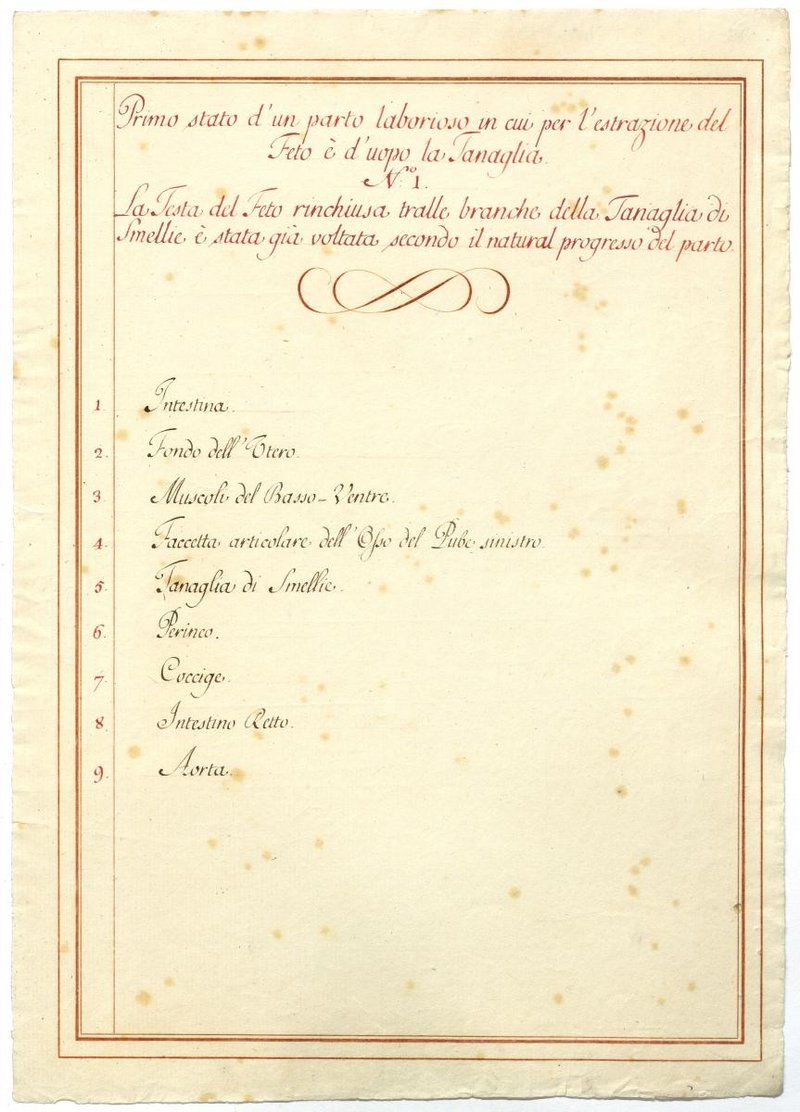 Primo stato d'un parto laborioso in cui per l'estrazione del
Feto è d'uopo la Tanaglia.
N.º 1.
La Testa del Feto rinchiusa tralle branche della Tanaglia di
Smellie è stata già voltata secondo il natural progresso del parto.
1. Intestina.
2. Fondo dell'Utero.
3. Muscoli del Basso-Ventre.
4. Faccetta articolare dell'Osso del Pube sinistro.
5. Tanaglia di Smellie.
6. Perineo.
7. Coccige.
8. Intestino Retto.
9. Aorta.